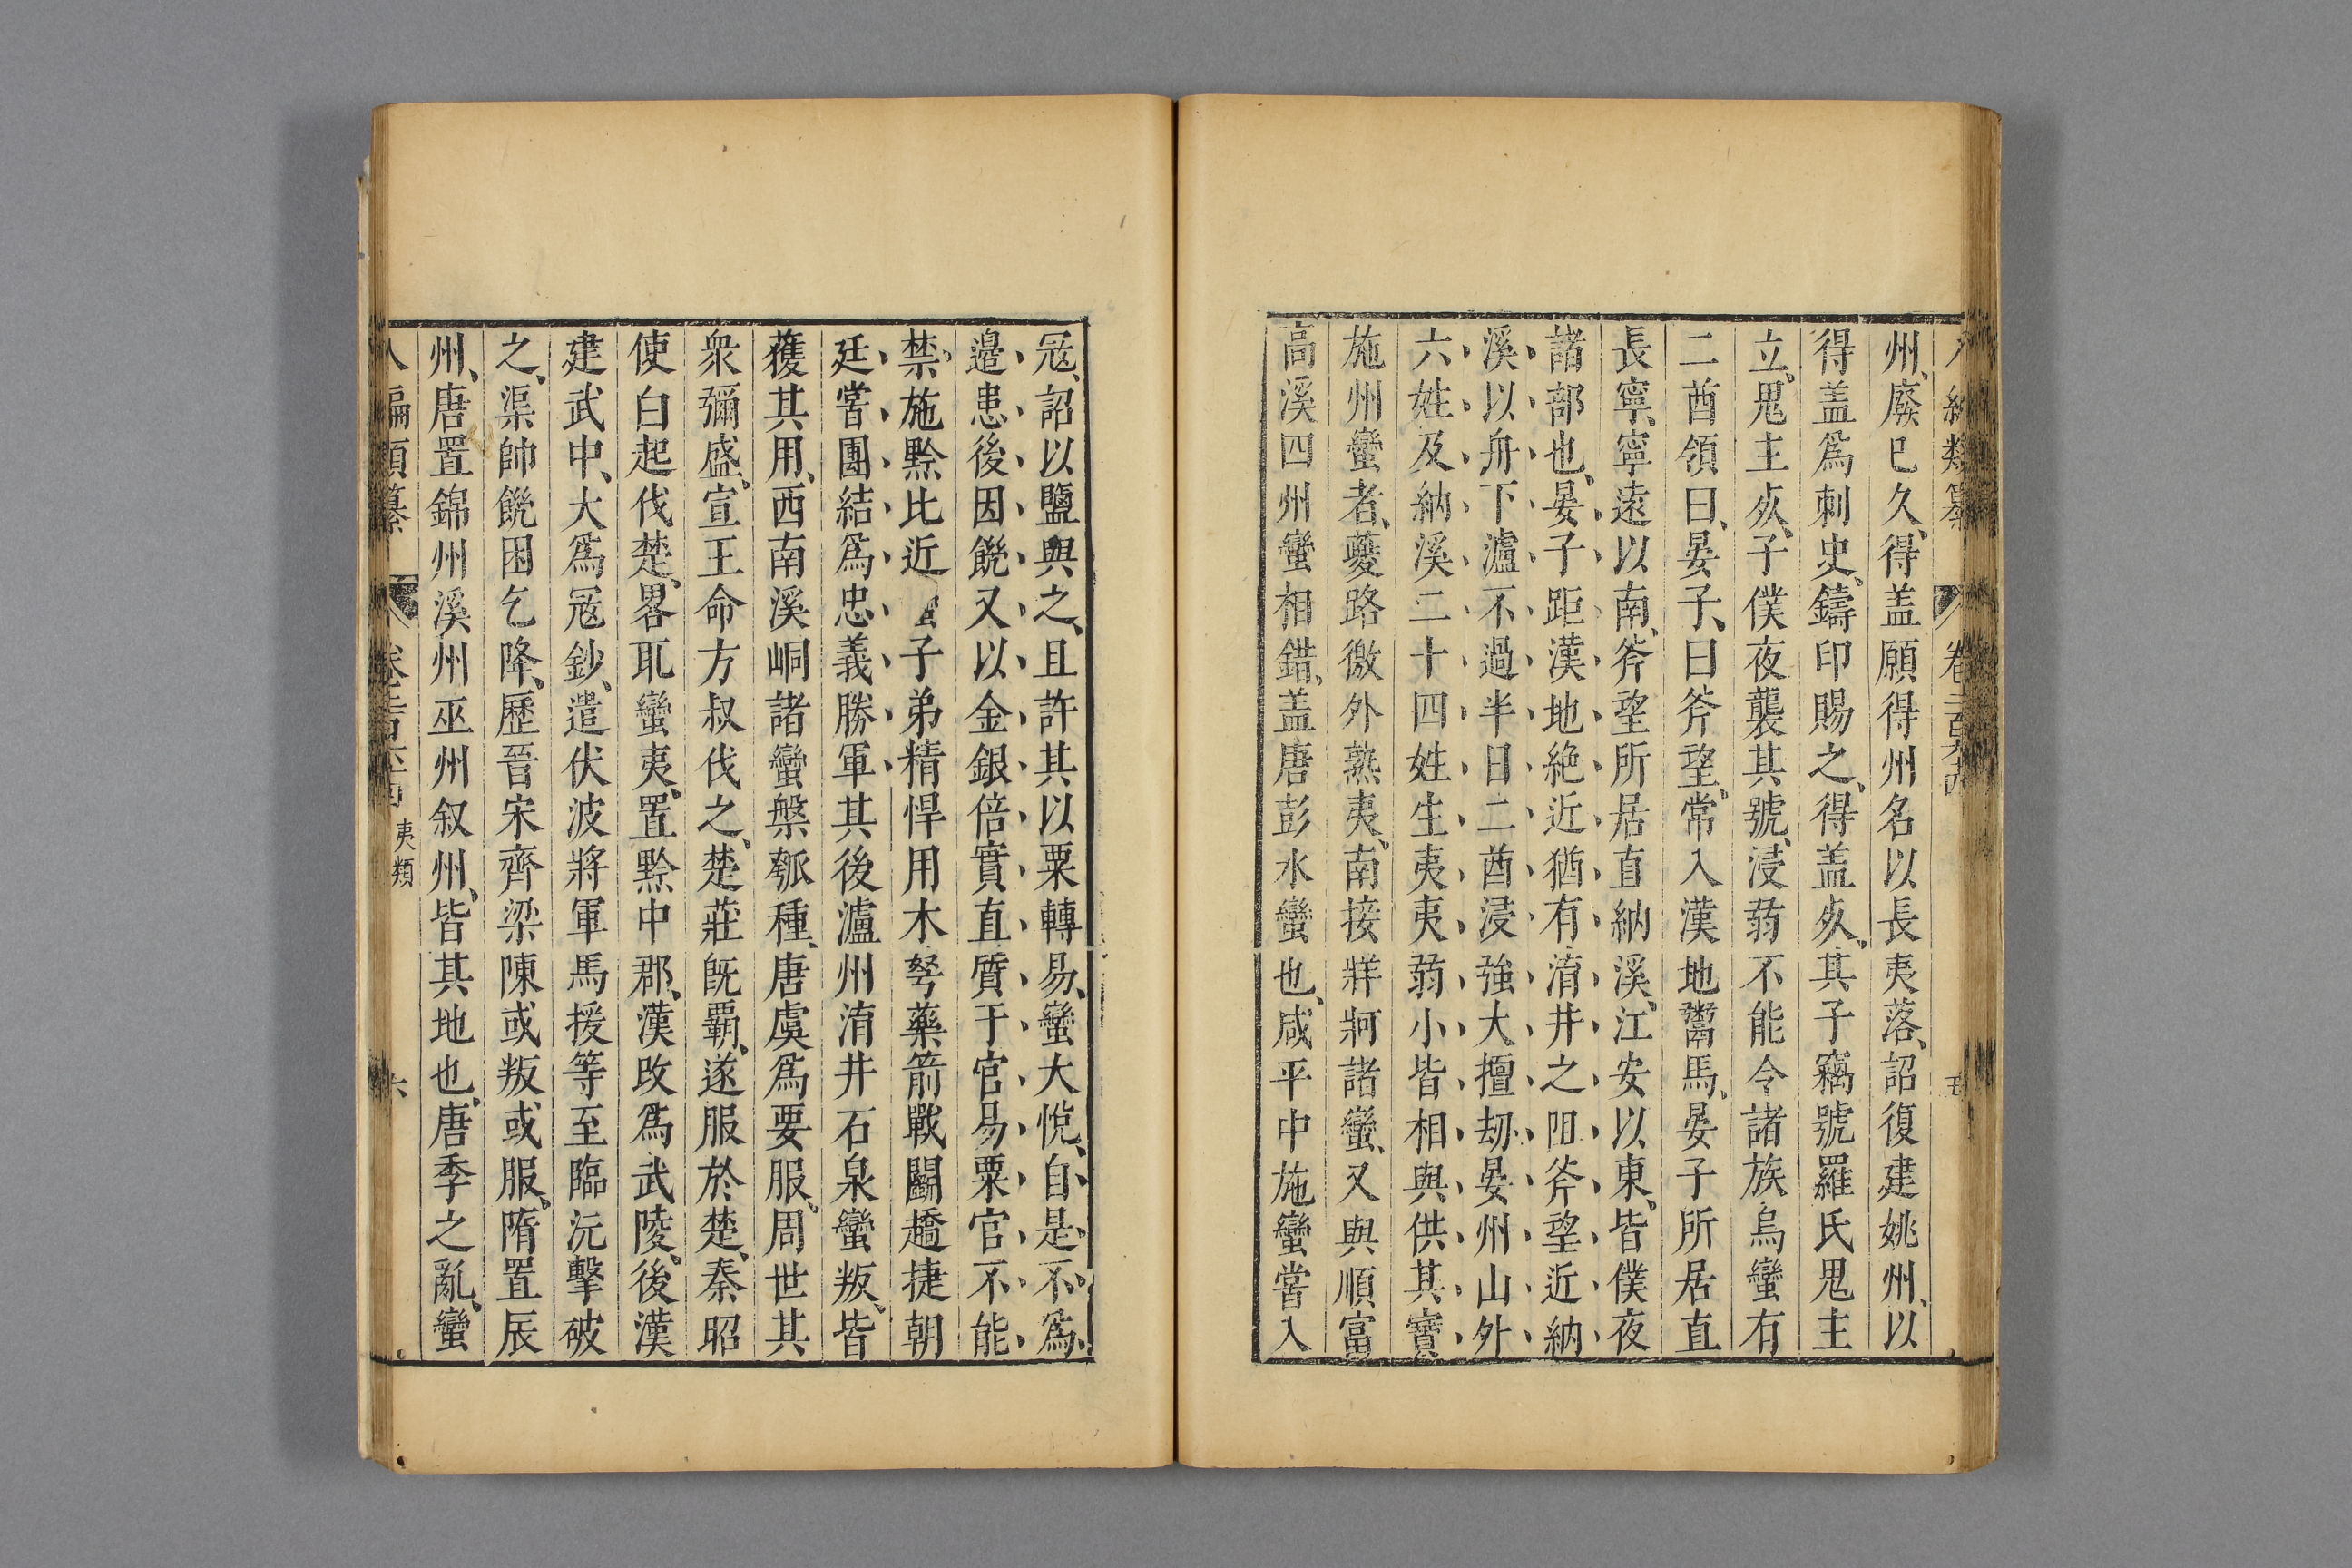 編類纂 卷二百六十四 五
州、廢已久、得盖願得州名以長夷落、詔復建姚州、以
得盖爲刺史、鑄印賜之、得盖死、其子竊號羅氏鬼主
立、鬼主死、子僕夜襲其號、浸弱不能令諸族烏蠻有
二酋領曰、晏子、曰斧望、常入漢地鬻馬、晏子所居直
長寧、寧遠以南、斧望所居直納溪、江安以東、皆僕夜
諸部也、晏子距漢地絶近猶有淯井之阻斧望近納
溪以舟下瀘不過半日二酋浸強大擅刼晏州山外
六姓及納溪二十四姓生夷夷弱小皆相與供其寶
施州蠻者、夔路徼外熟夷、南接牂牁諸蠻、又與順富
高溪四州蠻相錯、盖唐彭水蠻也、咸平中施蠻嘗入
冦、詔以鹽與之、且許其以粟轉易、蠻大悅、自是不爲
邉患後因饑又以金銀倍實直質于官易粟官不能
禁、施黔比近子弟精悍用木弩藥箭戰鬭趫捷朝
廷嘗團結爲忠義勝軍其後瀘州淯井石泉蠻叛、皆
獲其用、西南溪峒諸蠻槃瓠種、唐虞爲要服、周世其
衆彌盛、宣王命方叔伐之、楚莊旣霸、遂服於楚、秦昭
使白起伐楚、畧取蠻夷、置黔中郡、漢改爲武陵、後漢
建武中、大爲冦鈔、遣伏波將軍馬援等至臨沅擊破
之、渠帥饑困乞降、歷晉宋齊梁陳或叛或服、隋置辰
州、唐置錦州溪州巫州叙州、皆其地也、唐季之亂、蠻
編類纂 卷二百六十四 夷類 六